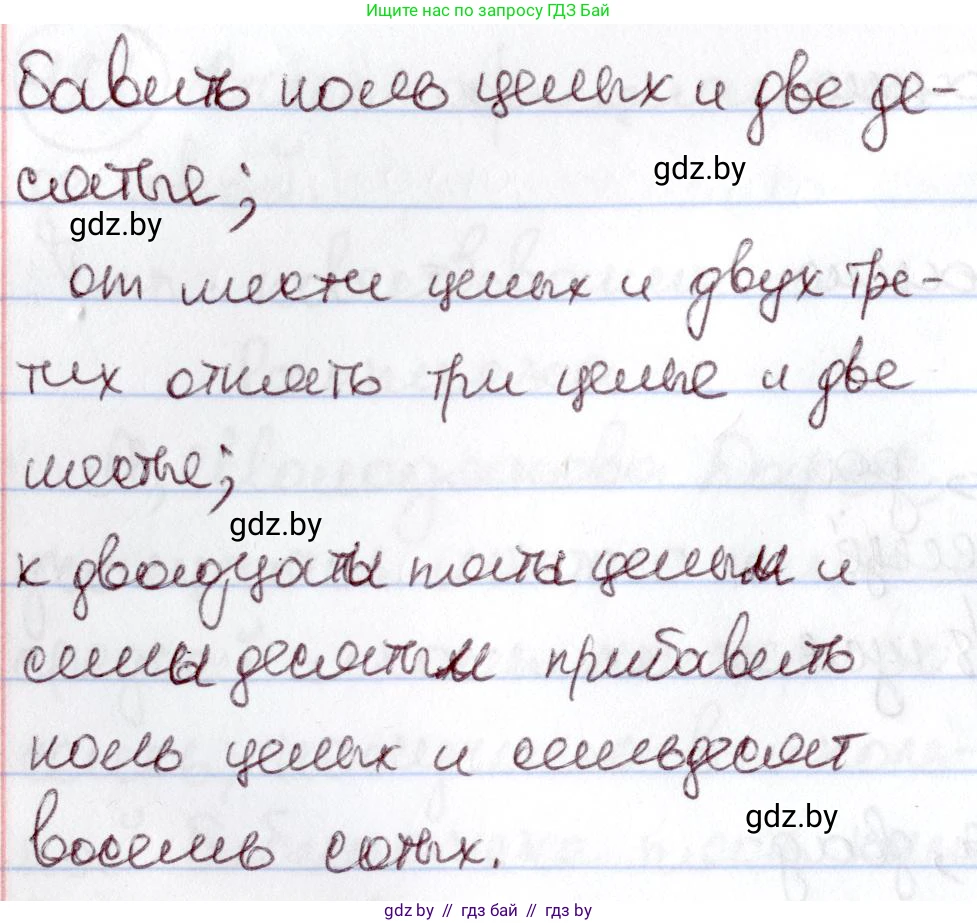 Ищите нас по запросу ГДЗ Бай
бавить ноль целых и две де-
сятые;
gdz.by
gdz.by
от шести целых и двух тре-
тих отнять три целые и две
шестые;
gdz.by
к двадцати пяти целым и
семи десятым прибавить
ноль целых и семьдесят
gdz.by
восемь сотых.
gdz.by // gdz бай // gdz by